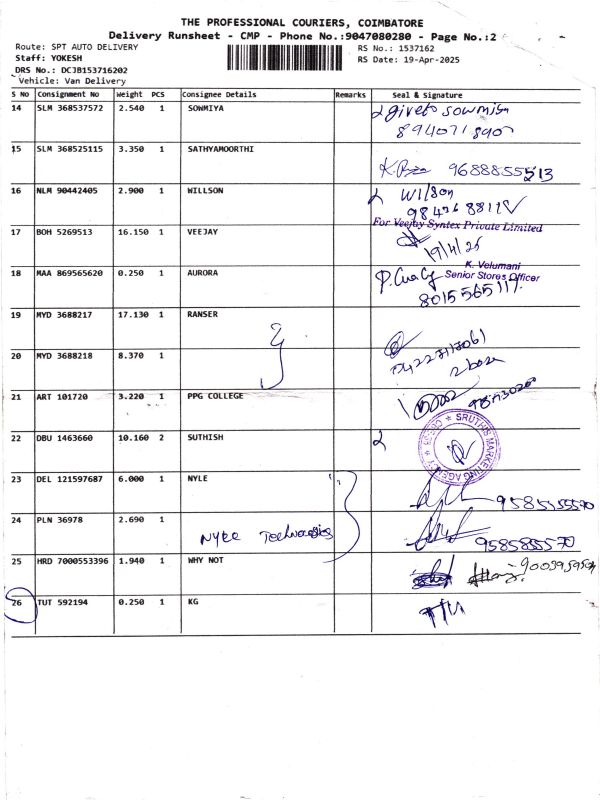 THE PROFESSIONAL COURIERS, COIMBATORE
Delivery Runsheet - CMP - Phone No.:9047080280 - Page No.:2
Route: SPT AUTO DELIVERY
RS No.: 1537162
Staff: YOKESH
RS Date: 19-Apr-2025
DRS No.: DCJB153716202
Vehicle: Van Delivery
S No Consignment No Weight PCS Consignee Details Remarks Seal & Signature
14 SLM 368537572 2.540 1 SOWMIYA
giveto sowmiya
15 SLM 368525115 3.350 1 SATHYAMOORTHI
9688855513
16 NLM 90442405 2.900 1 WILLSON
Wilson
For Veejay Syntex Private Limited
17 BOH 5269513 16.150 1 VEEJAY
19/4/25
K. Velumani
Senior Stores Officer
18 MAA 869565620 0.250 1 AURORA
8015565117
19 MYD 3688217 17.130 1 RANSER
20 MYD 3688218 8.370 1
2 box
21 ART 101720 3.220 1 PPG COLLEGE
22 DBU 1463660 10.160 2 SUTHISH
SRUTHI MARKETING AGENCY
23 DEL 121597687 6.000 1 NYLE
24 PLN 36978 2.690 1
Nyle Technologies
9585855570
25 HRD 7000553396 1.940 1 WHY NOT
26 TUT 592194 0.250 1 KG